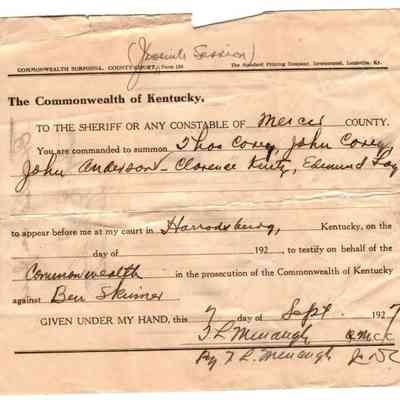 (Juvenile Session)
COMMONWEALTH SUBPOENA, COUNTY COURT, Form 150 The Standard Printing Company, Incorporated, Louisville, Ky.
The Commonwealth of Kentucky,
TO THE SHERIFF OR ANY CONSTABLE OF Mercer COUNTY.
You are commanded to summon Thos Corey, John Corey,
John Anderson - Clarence Kurtz, Edmund Fay
to appear before me at my court in Harrodsburg, Kentucky, on the
day of 192 , to testify on behalf of the
Commonwealth in the prosecution of the Commonwealth of Kentucky
against Ben Skinner
GIVEN UNDER MY HAND, this 7 day of Sept. 1927
T L Menaugh C.M.C.C.
By T. L. Menaugh Jr DC